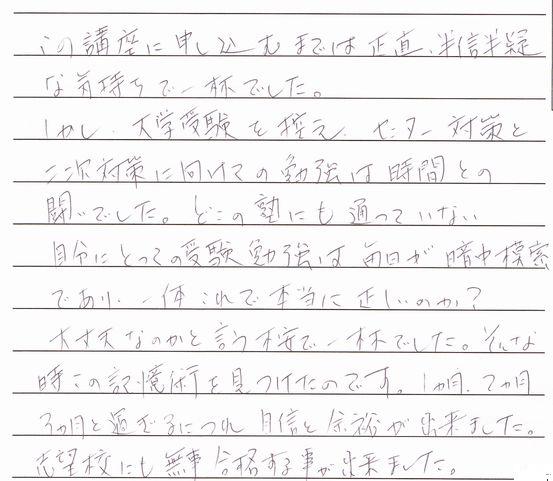 この講座に申し込むまでは正直、半信半疑
な気持ちで一杯でした。
しかし、大学受験を控え、センター対策と
二次対策に向けての勉強は時間との
闘いでした。どこの塾にも通っていない
自分にとっての受験勉強は毎日が暗中模索
であり、一体これで本当に正しいのか?
大丈夫なのかと言う不安で一杯でした。そんな
時この記憶術を見つけたのです。1ヵ月、2ヵ月
3ヵ月と過ぎるにつれ自信と余裕が出来ました。
志望校にも無事合格する事が出来ました。